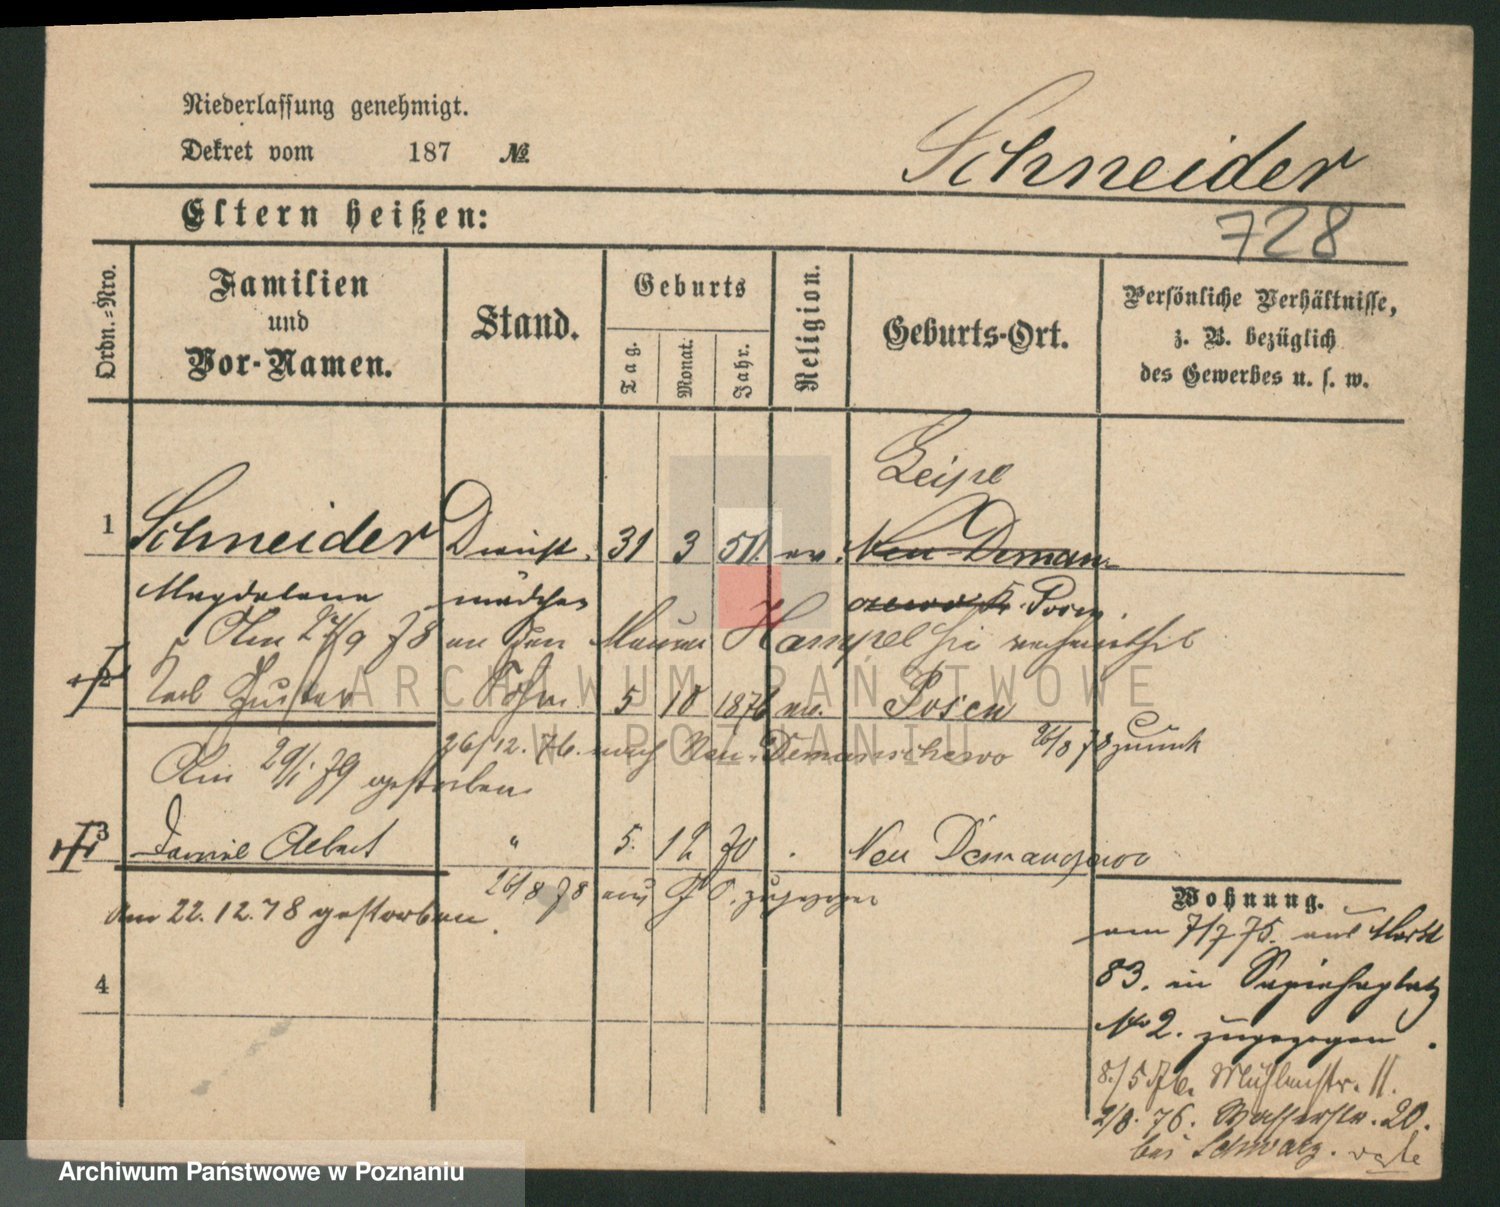 Niederlassung genehmigt.
Dekret vom 187 No.
Schneider
Eltern heißen:
728
Ordn.-Nro.
Familien und Vor-Namen.
Stand.
Geburts
Tag.
Monat.
Jahr.
Religion.
Geburts-Ort.
Persönliche Verhältnisse,
z. B. bezüglich
des Gewerbes u. s. w.
Leipe
1 Schneider Dienst. 31 3 50. ev. Neu Deman
Magdalena mädchen Posen
Am 27/9 78 an den Maurer Hampel hie verheirathet
2 Karl Gustav Sohn 5 10 1876 ev. Posen
26/12. 76. nach Neu-Demanschewo 26/8 78 zurück
Am 29/1. 79 gestorben
3 Daniel Albert " 5. 12 70 . Neu Demanczewo
26/8 78 aus zugezogen
Am 22. 12. 78 gestorben.
4
Wohnung.
am 7/7 75. aus Markt
83. in Sapiehaplatz
No 2. zugezogen.
8./5 76. Mühlenstr. 11.
2/8. 76. Wasserstr. 20.
bei Schwarz.
ARCHIWUM PAŃSTWOWE
W POZNANIU
Archiwum Państwowe w Poznaniu